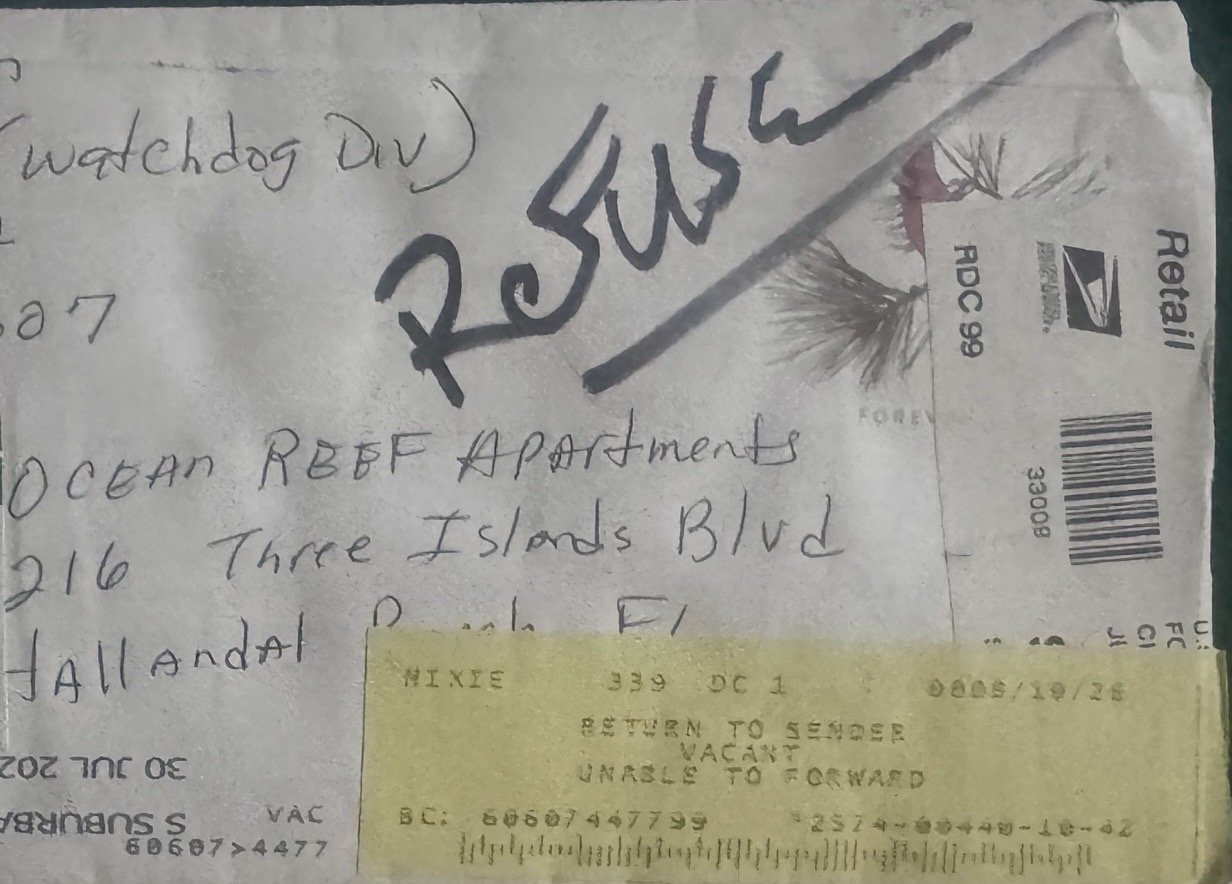 (Watchdog Div)
07
Refuse
Retail
RDC 99
FOREV
33009
OCEAN REEF Apartments
216 Three Islands Blvd
HAllAndAl
Fl
NIXIE 339 DC 1
RETURN TO SENDER
VACANT
UNABLE TO FORWARD
BC: 60607447799
30 JUL 202
S SUBURBA
VAC
60607>4477